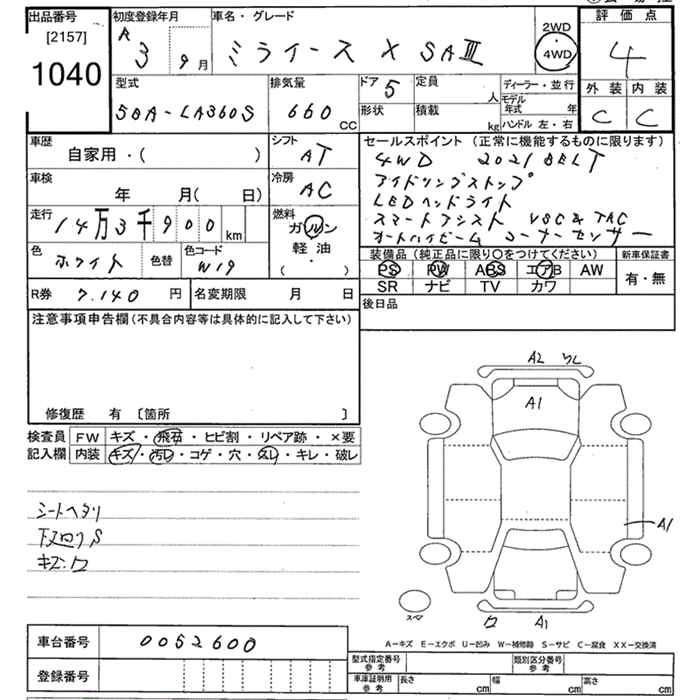 出品番号 初度登録年月 車名・グレード 評価点
[2157]
1040
R 3 9月 ミライース X SAⅢ 2WD ・ 4WD 4
型式 排気量 ドア 5 定員 人 ディーラー・並行 外装 内装
5BA-LA360S 660 CC 形状 積載 kg モデル年式 年 C C
ハンドル 左・右
車歴 シフト セールスポイント (正常に機能するものに限ります)
自家用・( ) AT 4WD 2021 BELT
車検 冷房 アイドリングストップ
年 月( 日) AC LEDヘッドライト
走行 燃料 スマートアシスト VSC&TRC
14万3千900km ガソリン オートハイビーム コーナーセンサー
色 色替 色コード 軽油
ホワイト W19 ( ・ )
装備品 (純正品に限り○をつけてください) 新車保証書
PS PW ABS エアB AW 有・無
SR ナビ TV カワ
R券 7.140 円 名変期限 月 日
後日品
注意事項申告欄(不具合内容等は具体的に記入して下さい)
修復歴 有 [箇所 ]
検査員 FW キズ・飛石・ヒビ割・リペア跡・×要
記入欄 内装 キズ・汚レ・コゲ・穴・スレ・キレ・破レ
シートヘタリ
下回りS
キズ.
A2
A1
A1
A1
A−キズ E−エクボ U−凹み W−補修跡 S−サビ C−腐食 XX−交換済
車台番号 0052600
登録番号
型式指定番号 参考 類別区分番号 参考
車庫証明用 参考 長さ cm 幅 cm 高さ cm